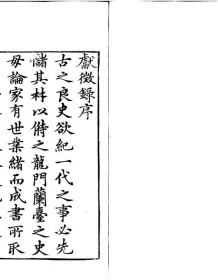 獻徵錄序
古之良史欲紀一代之事必先
儲其材以偹之龍門蘭臺之史
毋論家有世業緒而成書所取